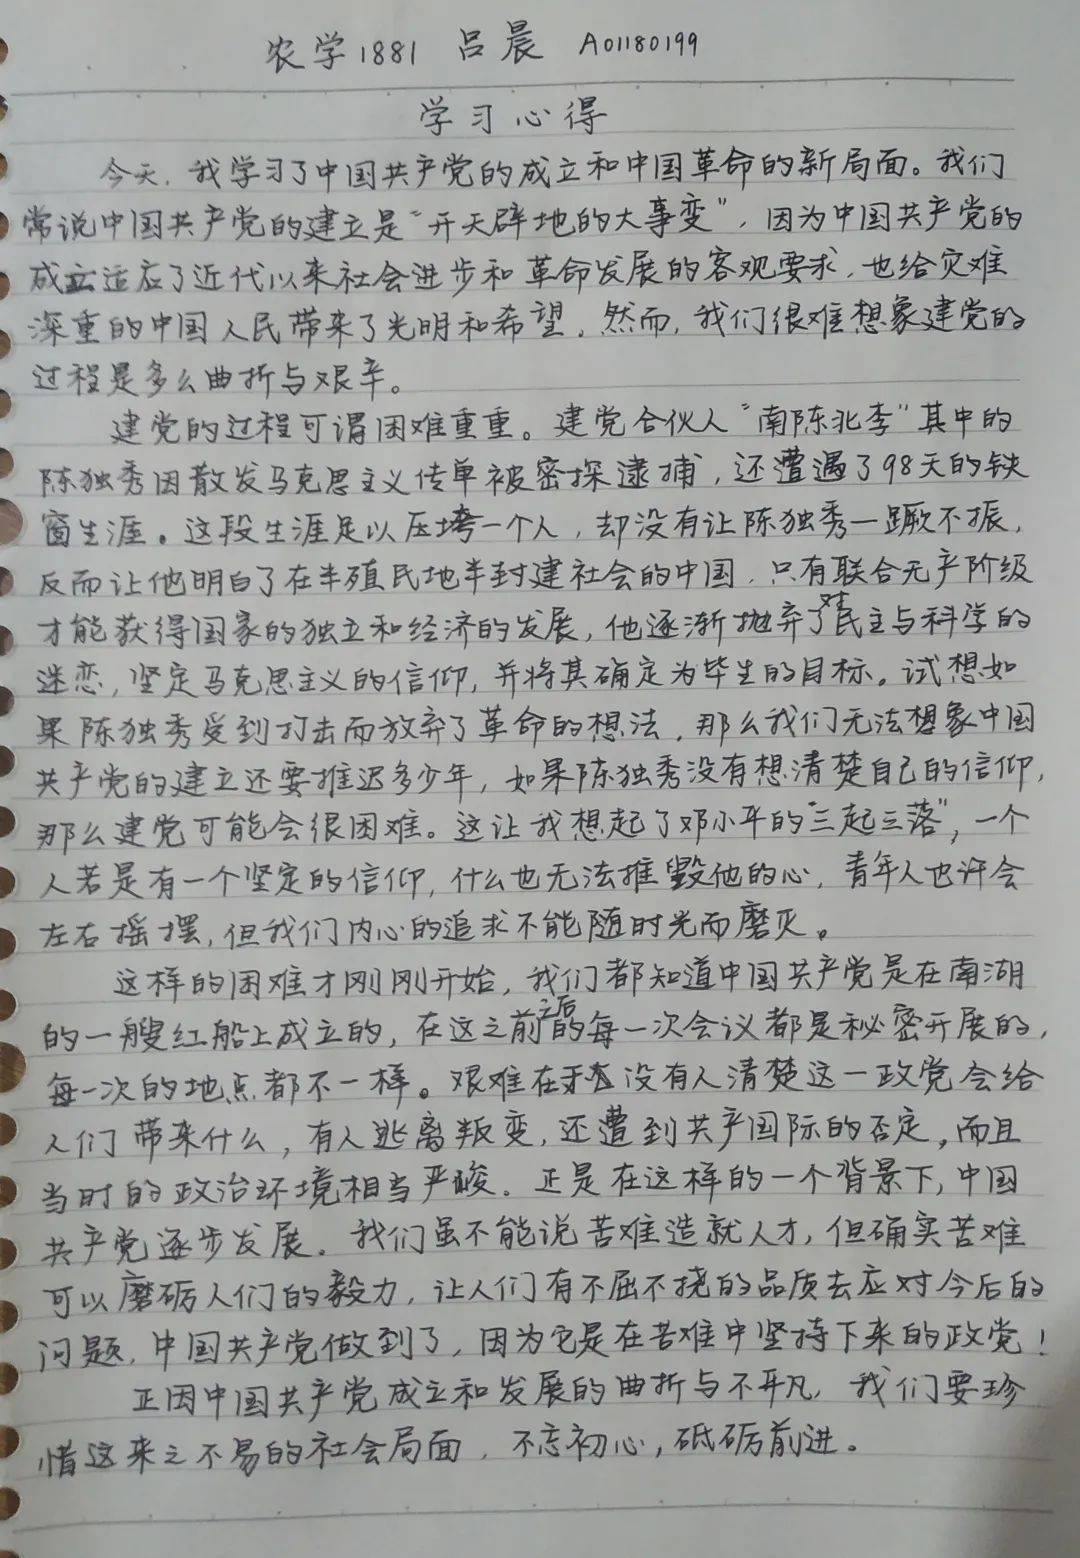 农学1881 吕晨 A01180199
学习心得
今天,我学习了中国共产党的成立和中国革命的新局面。我们
常说中国共产党的建立是“开天辟地的大事变”,因为中国共产党的
成立适应了近代以来社会进步和革命发展的客观要求,也给灾难
深重的中国人民带来了光明和希望。然而,我们很难想象建党的
过程是多么曲折与艰辛。
建党的过程可谓困难重重。建党合伙人“南陈北李”其中的
陈独秀因散发马克思主义传单被密探逮捕,还遭遇了98天的铁
窗生涯。这段生涯足以压垮一个人,却没有让陈独秀一蹶不振,
反而让他明白了在半殖民地半封建社会的中国,只有联合无产阶级
才能获得国家的独立和经济的发展,他逐渐抛弃了对民主与科学的
迷恋,坚定马克思主义的信仰,并将其确定为毕生的目标。试想如
果陈独秀受到打击而放弃了革命的想法,那么我们无法想象中国
共产党的建立还要推迟多少年,如果陈独秀没有想清楚自己的信仰,
那么建党可能会很困难。这让我想起了邓小平的“三起三落”,一个
人若是有一个坚定的信仰,什么也无法摧毁他的心,青年人也许会
左右摇摆,但我们内心的追求不能随时光而磨灭。
这样的困难才刚刚开始,我们都知道中国共产党是在南湖
的一艘红船上成立的,在这之前之后的每一次会议都是秘密开展的,
每一次的地点都不一样。艰难在于没有人清楚这一政党会给
人们带来什么,有人逃离叛变,还遭到共产国际的否定,而且
当时的政治环境相当严峻。正是在这样的一个背景下,中国
共产党逐步发展。我们虽不能说苦难造就人才,但确实苦难
可以磨砺人们的毅力,让人们有不屈不挠的品质去应对今后的
问题,中国共产党做到了,因为它是在苦难中坚持下来的政党!
正因中国共产党成立和发展的曲折与不平凡,我们要珍
惜这来之不易的社会局面,不忘初心,砥砺前进。